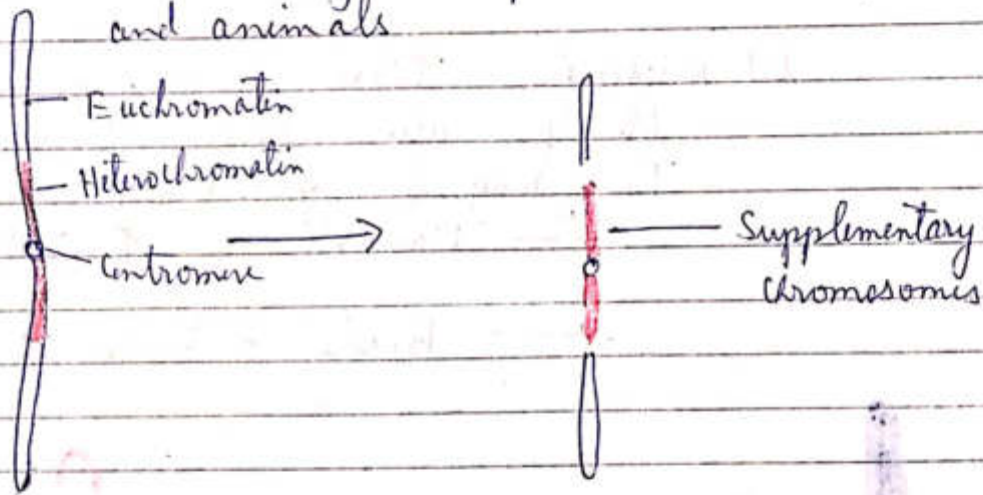 and animals
Euchromatin
Hiterochromatin
Centromere
Supplementary
Chromosomes